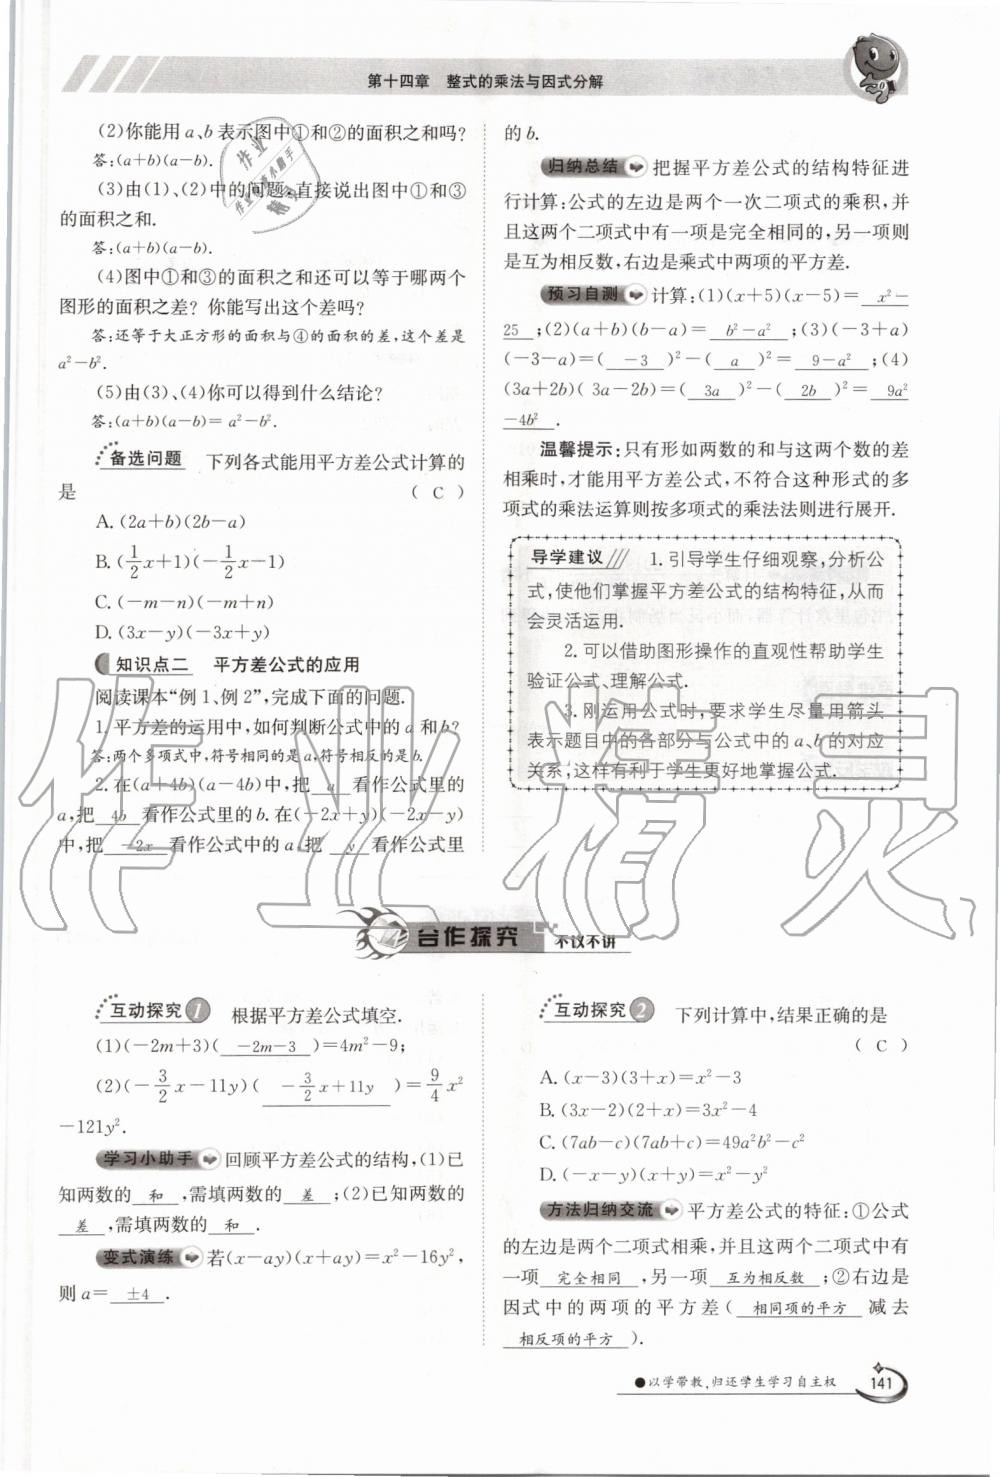 第十四章 整式的乘法与因式分解
(2)你能用a、b表示图中①和②的面积之和吗?
答:(a+b)(a-b).
(3)由(1)、(2)中的问题,直接说出图中①和③
的面积之和.
答:(a+b)(a-b).
(4)图中①和③的面积之和还可以等于哪两个
图形的面积之差? 你能写出这个差吗?
答:还等于大正方形的面积与④的面积的差,这个差是
a²-b².
(5)由(3)、(4)你可以得到什么结论?
答:(a+b)(a-b)=a²-b².
备选问题 下列各式能用平方差公式计算的
是 ( C )
A.(2a+b)(2b-a)
B.(1/2x+1)(-1/2x-1)
C.(-m-n)(-m+n)
D.(3x-y)(-3x+y)
知识点二 平方差公式的应用
阅读课本“例1、例2”,完成下面的问题.
1.平方差的运用中,如何判断公式中的a和b?
答:两个多项式中,符号相同的是a,符号相反的是b.
2.在(a+4b)(a-4b)中,把 a 看作公式里的
a,把 4b 看作公式里的b.在(-2x+y)(-2x-y)
中,把 -2x 看作公式中的a,把 y 看作公式里
的b.
归纳总结 把握平方差公式的结构特征进
行计算:公式的左边是两个一次二项式的乘积,并
且这两个二项式中有一项是完全相同的,另一项则
是互为相反数,右边是乘式中两项的平方差.
预习自测 计算:(1)(x+5)(x-5)= x²-
25 ;(2)(a+b)(b-a)= b²-a² ;(3)(-3+a)
(-3-a)=( -3 )²-( a )²= 9-a² ;(4)
(3a+2b)(3a-2b)=( 3a )²-( 2b )²= 9a²
-4b² .
温馨提示:只有形如两数的和与这两个数的差
相乘时,才能用平方差公式,不符合这种形式的多
项式的乘法运算则按多项式的乘法法则进行展开.
导学建议 1.引导学生仔细观察,分析公
式,使他们掌握平方差公式的结构特征,从而
会灵活运用.
2.可以借助图形操作的直观性帮助学生
验证公式、理解公式.
3.刚运用公式时,要求学生尽量用箭头
表示题目中的各部分与公式中的a、b的对应
关系,这样有利于学生更好地掌握公式.
作业精灵
合作探究 不议不讲
互动探究1 根据平方差公式填空.
(1)(-2m+3)( -2m-3 )=4m²-9;
(2)(-3/2x-11y)( -3/2x+11y )=9/4x²
-121y².
学习小助手 回顾平方差公式的结构,(1)已
知两数的 和 ,需填两数的 差 ;(2)已知两数的
差 ,需填两数的 和 .
变式演练 若(x-ay)(x+ay)=x²-16y²,
则a= ±4 .
互动探究2 下列计算中,结果正确的是
( C )
A.(x-3)(3+x)=x²-3
B.(3x-2)(2+x)=3x²-4
C.(7ab-c)(7ab+c)=49a²b²-c²
D.(-x-y)(x+y)=x²-y²
方法归纳交流 平方差公式的特征:①公式
的左边是两个二项式相乘,并且这两个二项式中有
一项 完全相同 ,另一项 互为相反数 ;②右边是
因式中的两项的平方差( 相同项的平方 减去
相反项的平方 ).
●以学带教,归还学生学习自主权
141